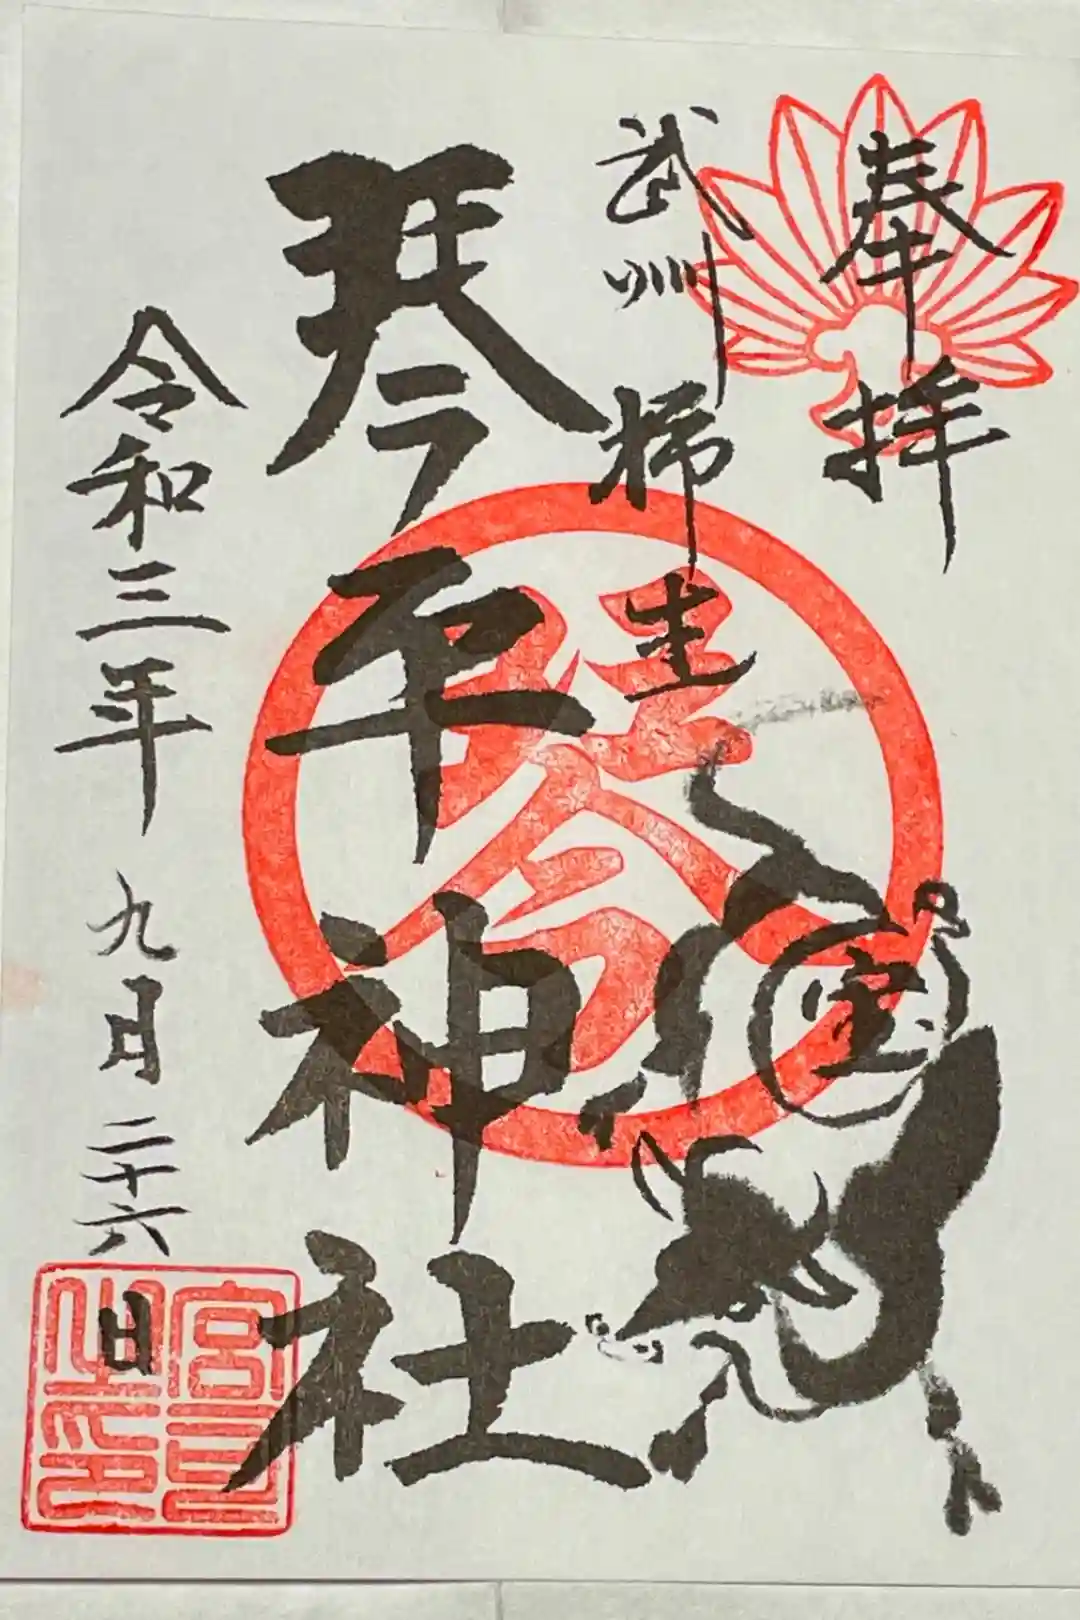 奉拝
武州柿生
琴平神社
令和三年九月二十六日
琴
宝
宮司
之印